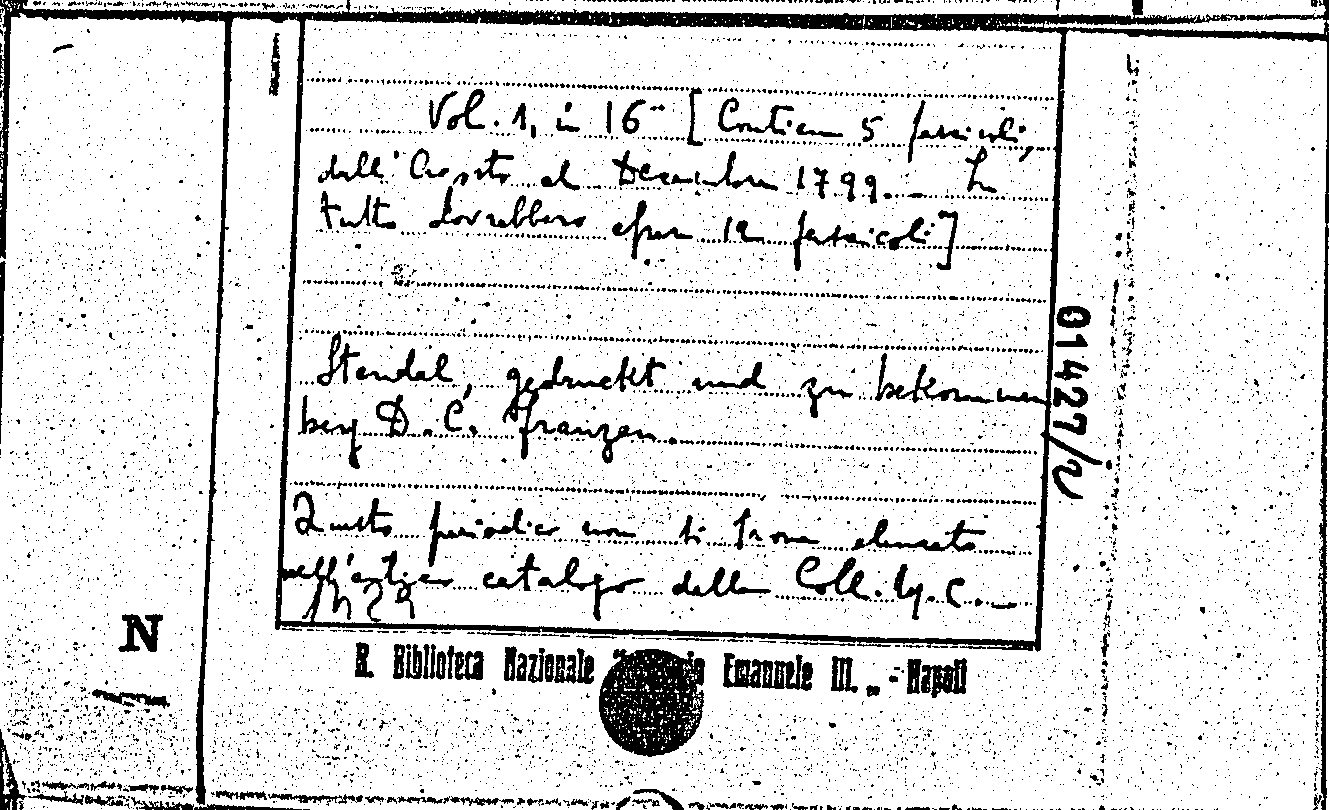 Vol. 1, in 16° [Contiene 5 fascicoli,
dall'Agosto al Decembre 1799. - In
tutto dovrebbero esser 12 fascicoli]
Stendal, gedruckt und zu bekommen
bey D. C. Franzen.
Questo periodico non si trova elencato
nell'antico catalogo della Coll. M. C. -
N
R. Biblioteca Nazionale Emanuele III. - Napoli
01427/2